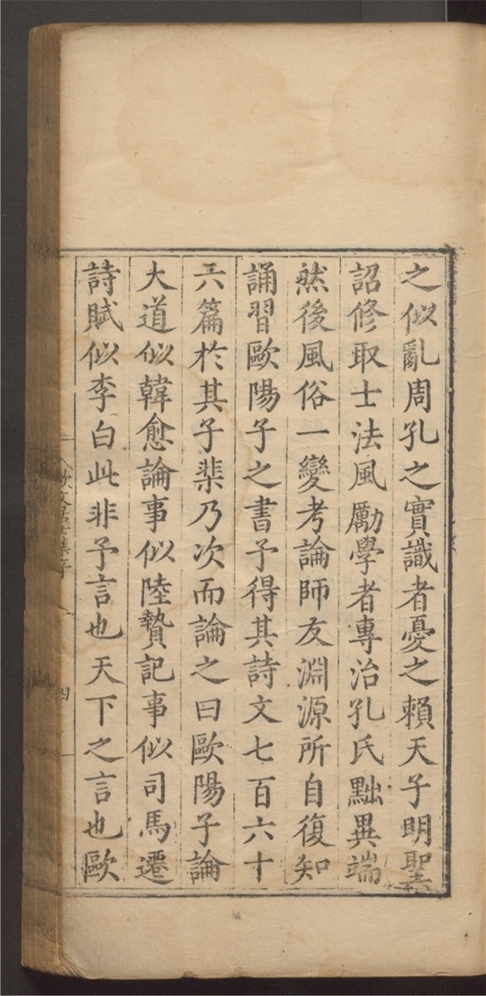 之似亂周孔之實識者憂之賴天子明聖
詔修取士法風勵學者專治孔氏黜異端
然後風俗一變考論師友淵源所自復知
誦習歐陽子之書予得其詩文七百六十
六篇於其子棐乃次而論之曰歐陽子論
大道似韓愈論事似陸贄記事似司馬遷
詩賦似李白此非予言也天下之言也歐
四